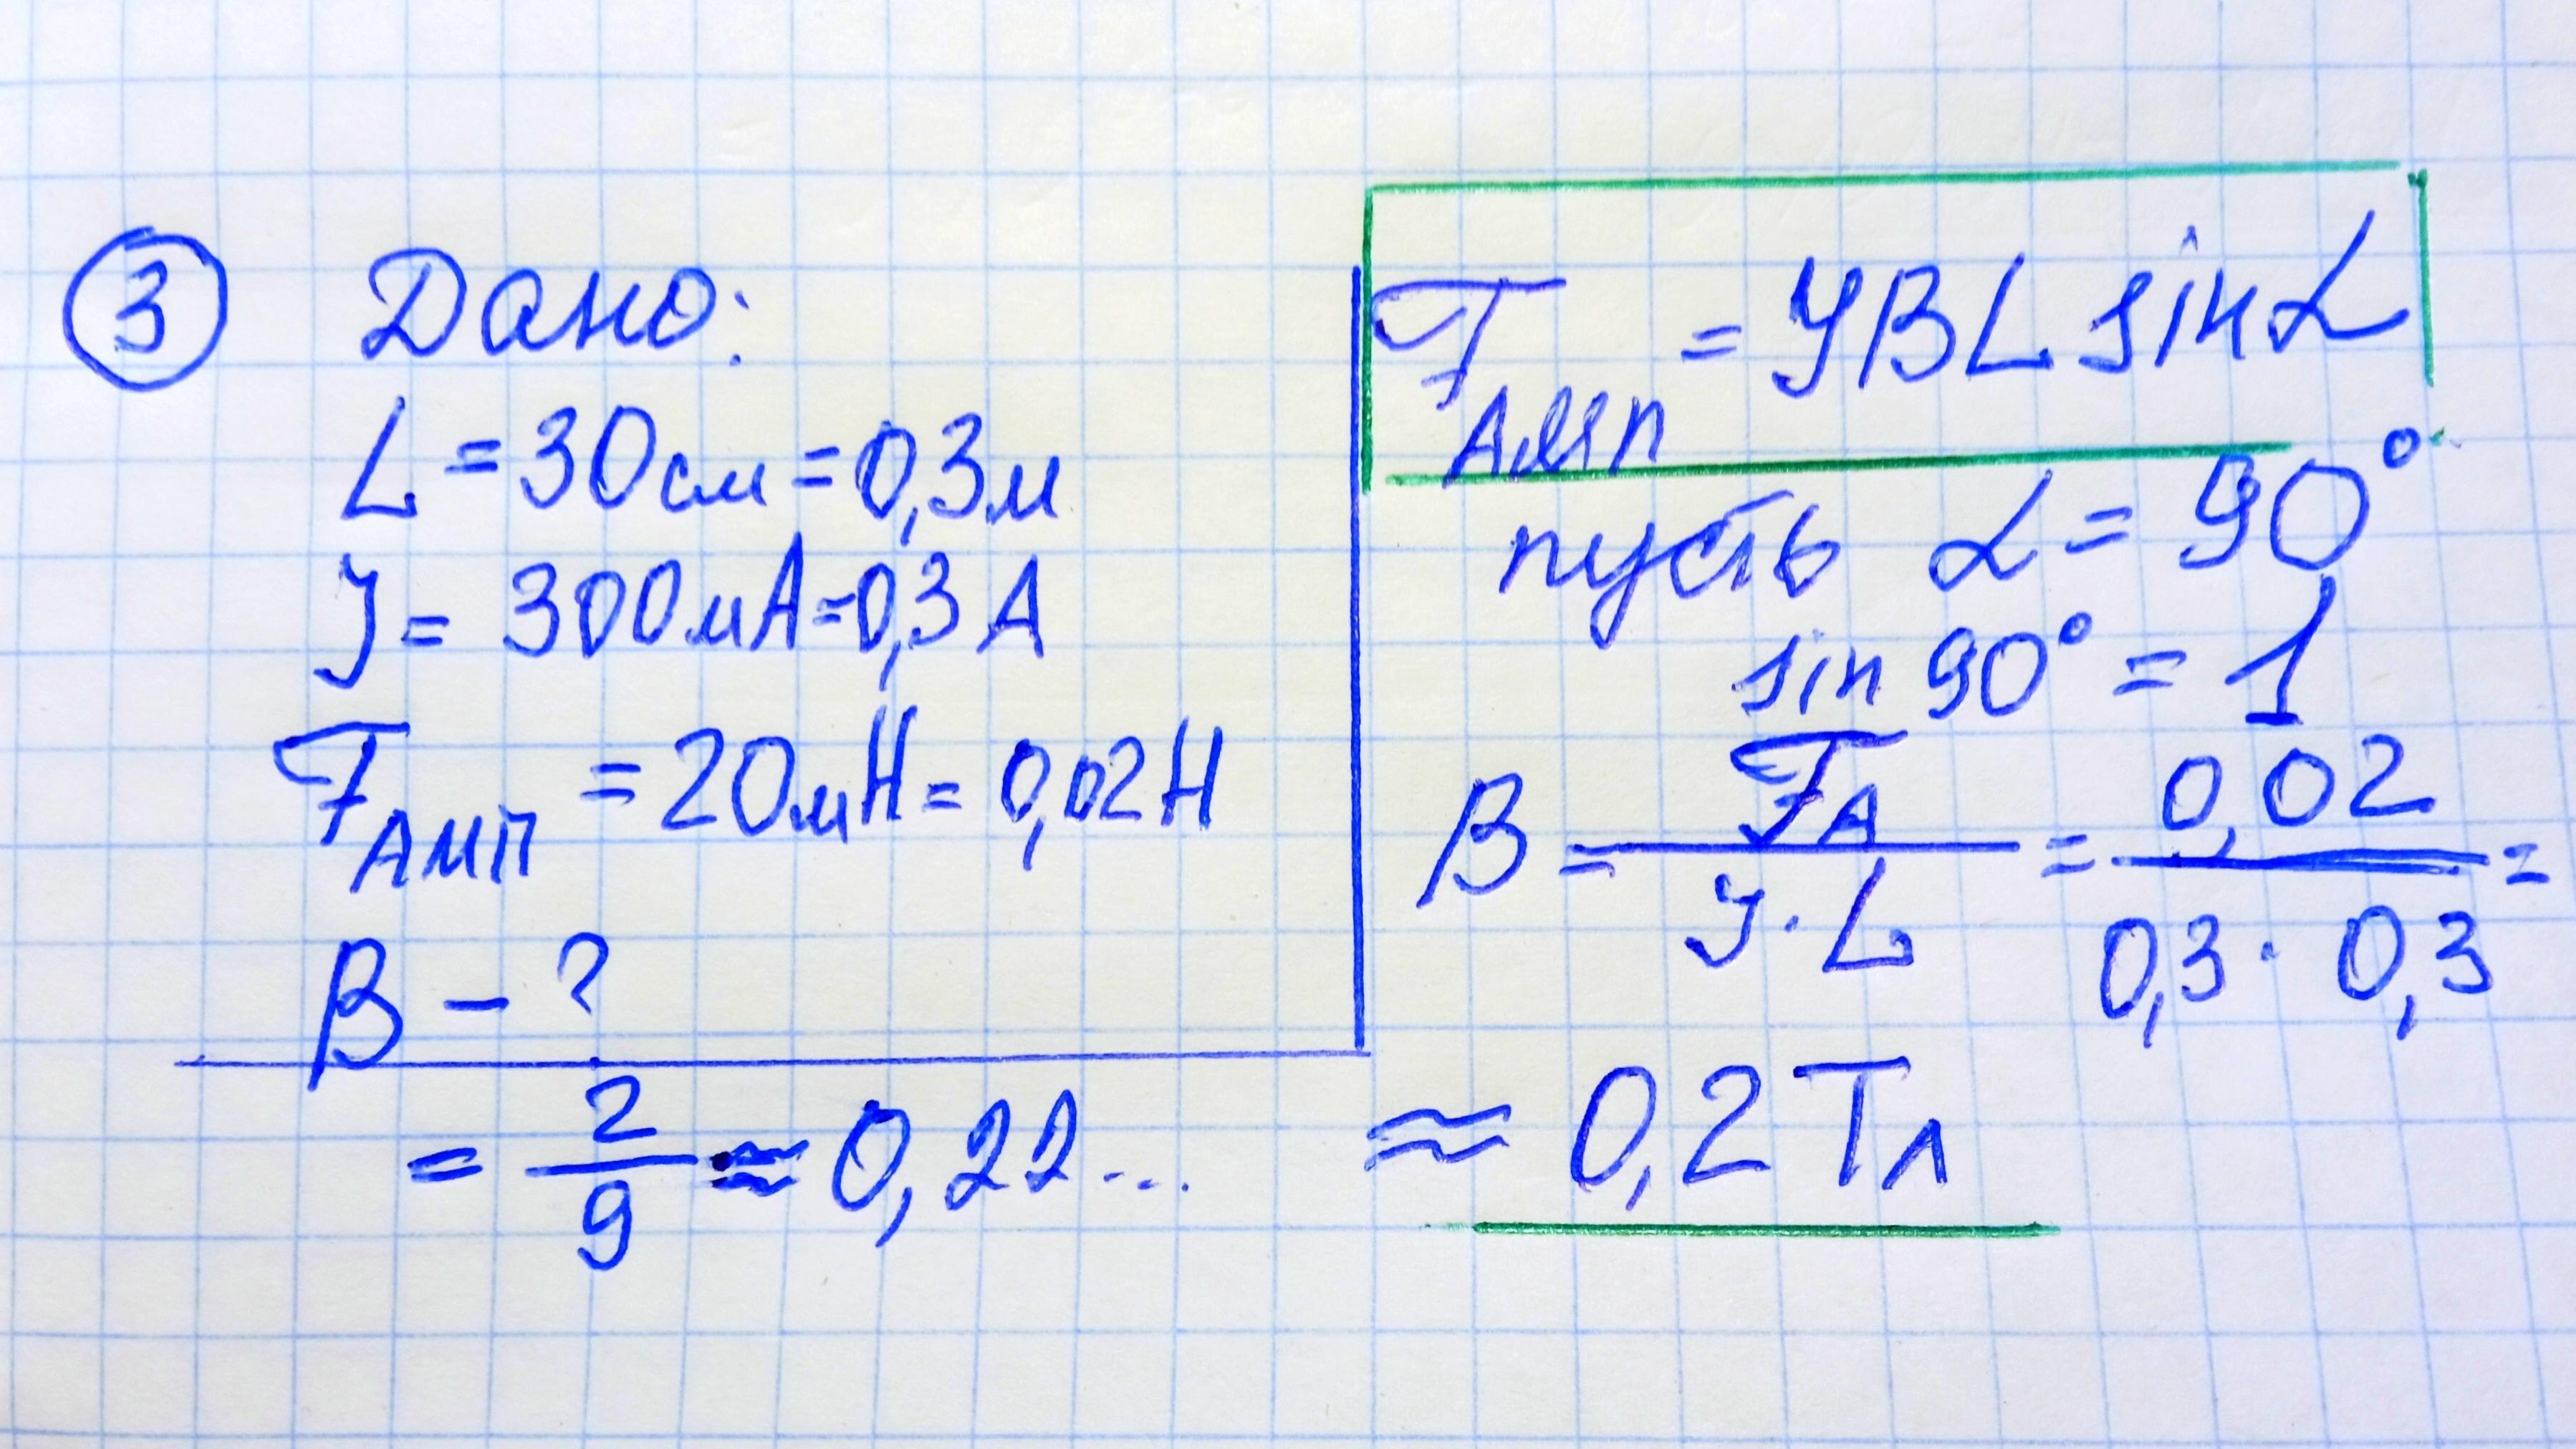 3 Дано:
L = 30 см = 0,3 м
J = 300 мА = 0,3 А
F АМП = 20 мН = 0,02 Н
B - ?
F АМП = J B L sin α
пусть α = 90°
sin 90° = 1
B = F А / J · L = 0,02 / 0,3 · 0,3 =
= 2/9 ≈ 0,22... ≈ 0,2 Тл